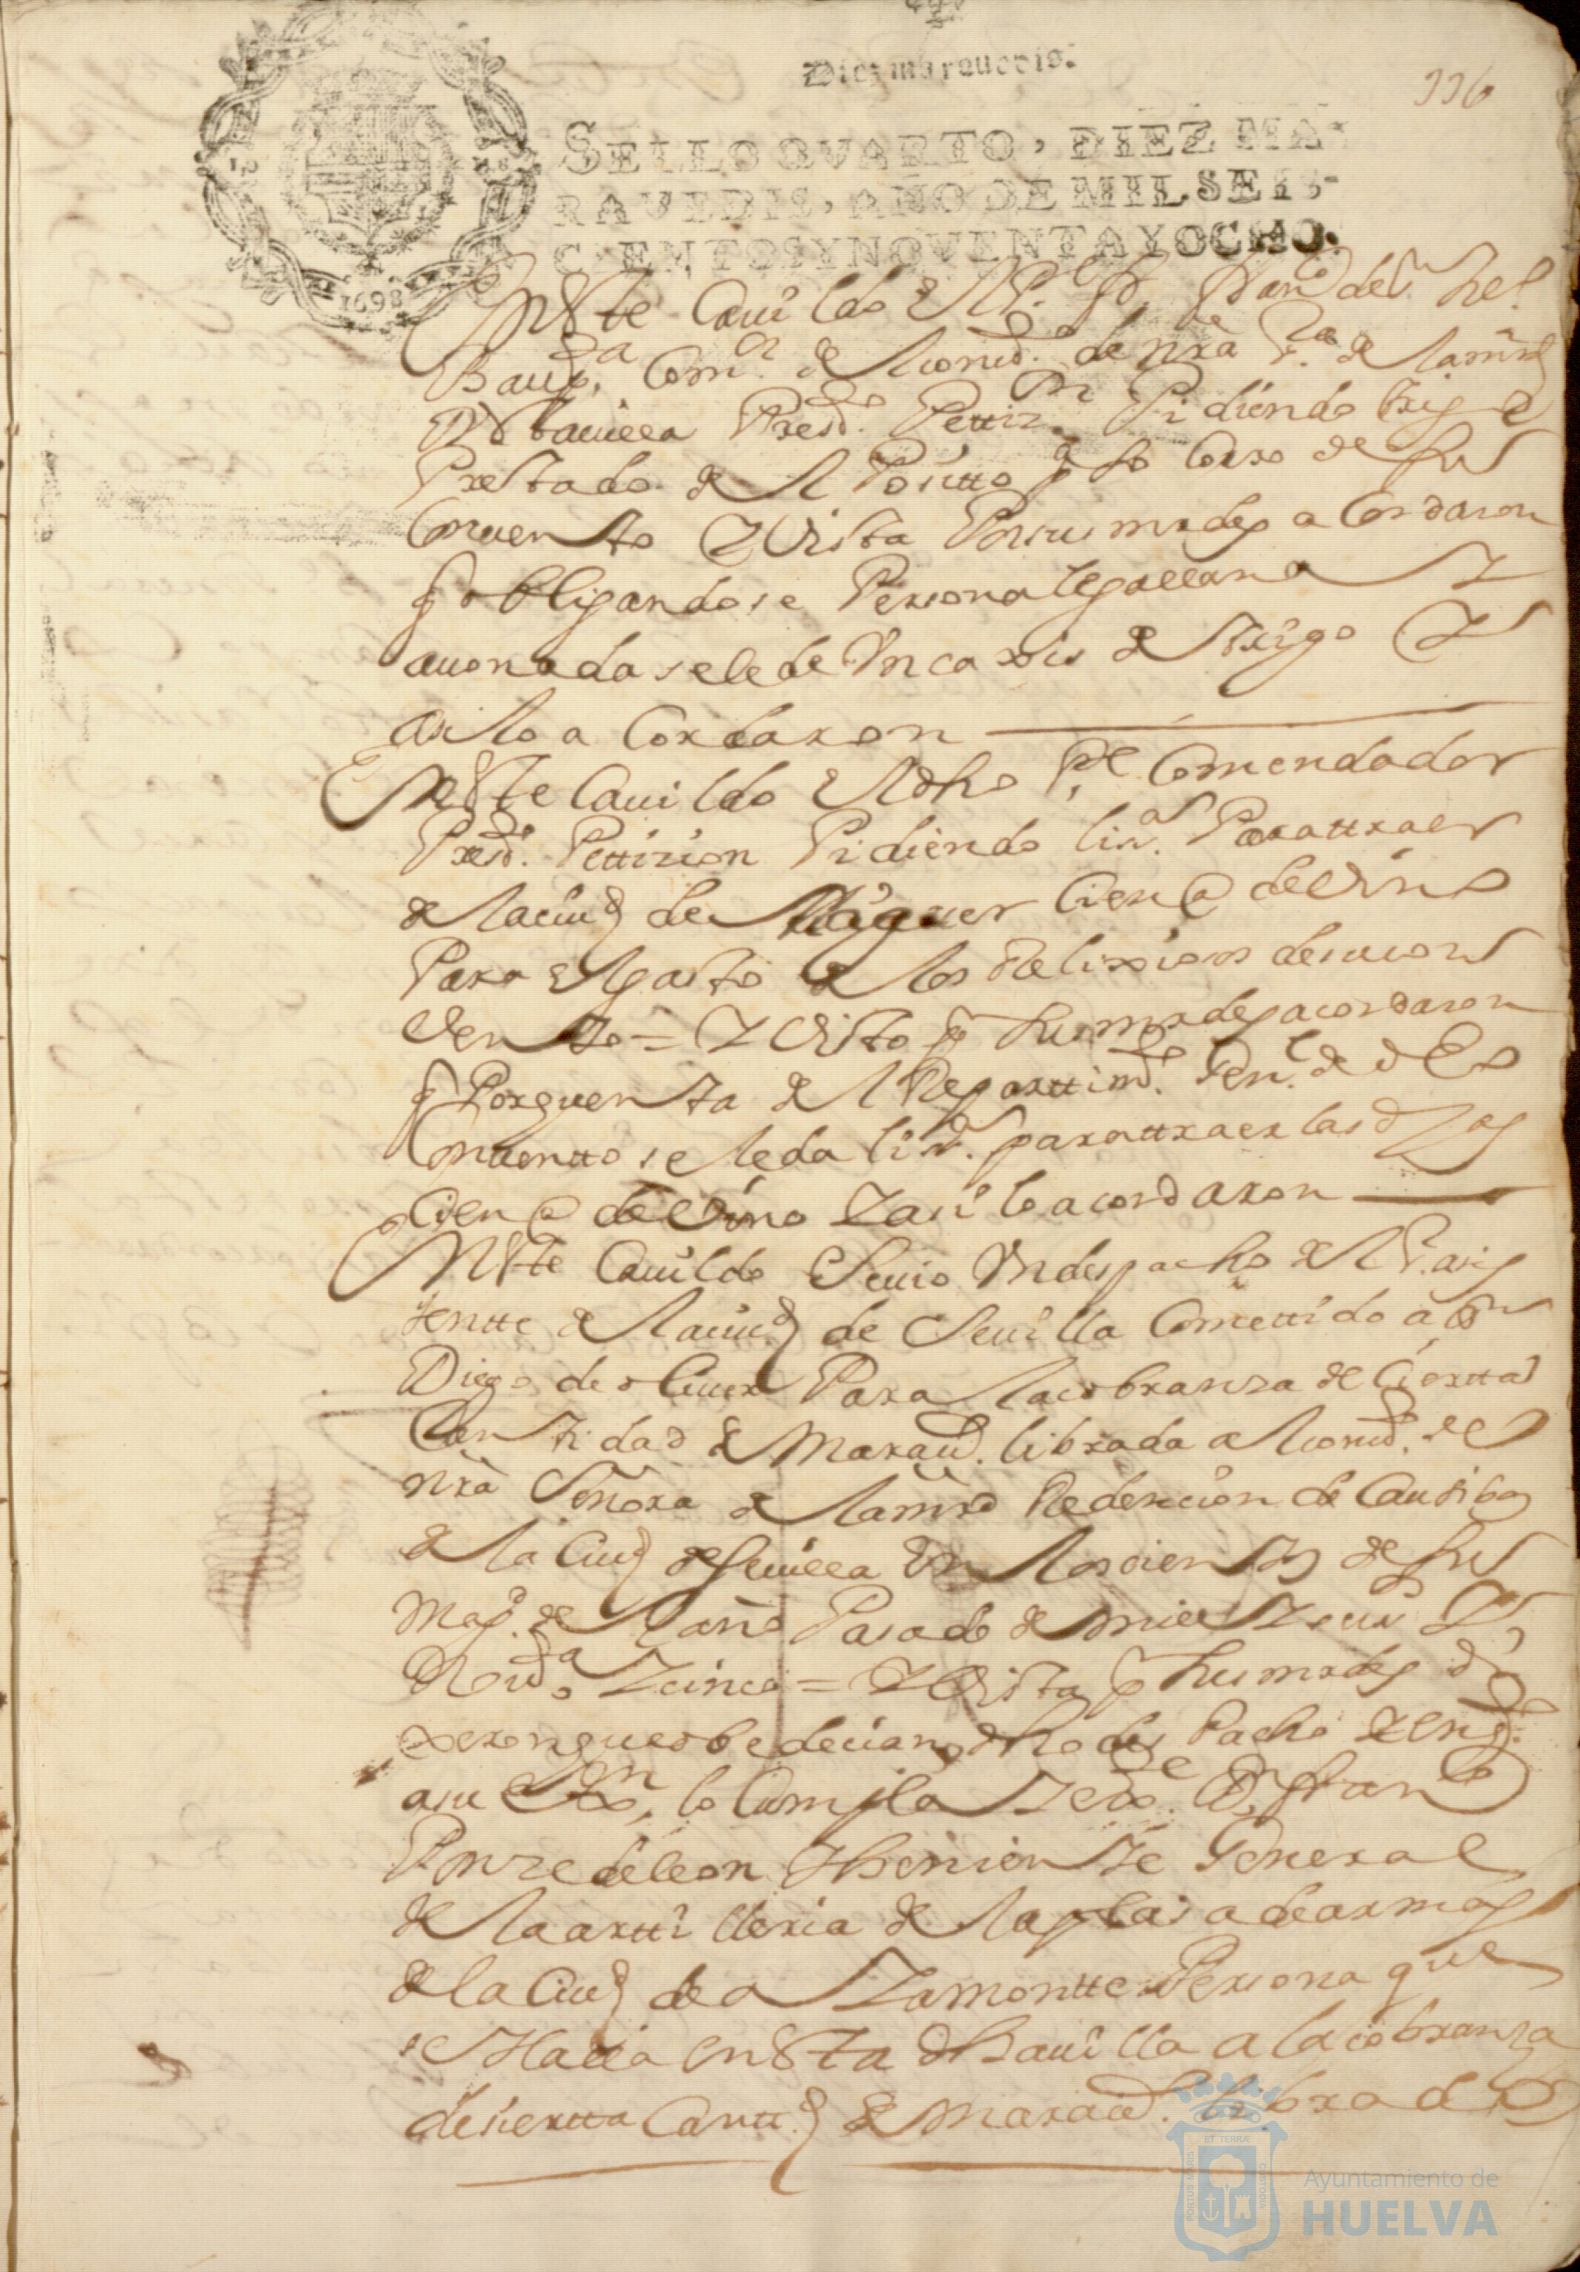 Diez maravedis.
116
SELLO QVARTO, DIEZ MA-
RAVEDIS, AÑO DE MIL SEIS-
CIENTOS Y NOVENTA Y OCHO.
1698
En este Cauildo el R.P. fr. Fran.co del
Baup.ta Com.or de el conu.to de nrã Sª. de la mrd
En esta uilla Presd.o Petiz.on Pidiendo trigo
Prestado de el Posito p.ª
Conuento Y Vista Por sus mrdes acordaron
q obligandose Persona lega llana Y
auonada se le de Un cais de trigo Y
asi lo acordaron
En este Cauildo el dho P.e Comendador
Presd.o Petizion Pidiendo liz.ª Para ttraer
de la ciud de Moguer Cien @ de Vino
Para el gasto de los Relixiosos de su con
Vento = Y Visto p sus mrdes acordaron
q Por quenta de el Reparttim.to Gen.l de dho
Conuentto se le da liz.ª para ttraer las dhas
Cien @ de Vino Y asi lo acordaron
En este Cauildo Se uio Un despacho de el S.r asis
tentte de la ciud de Seuilla Comettido a
Diego de oliuer Para la cobranza de Ciertta
Canttidad de Maraud.s librada a el conu.to de
nrã Señora de la mrd Redencion de Cautibos
de la Ciud de Seuilla En los cientos de su
Mag.d de el año Pasado de mill Y seis z.os
Nou.ta Y cinco = Y Vista p sus mrdes di
xeron que obedecian dho des Pacho Y en q.to
a su ex.on lo Cumpla Y edo.e D.n Fran.co
Ponze de leon thenientte General
de la arttilleria de la plasa de armas
de la Ciud de aYamontte Persona que
se Halla en esta dha uilla a la cobranza
de ciertta Cantt.d de maraud.s librado
PORTUS MARIS ET TERRAE CUSTODIA
Ayuntamiento de
HUELVA